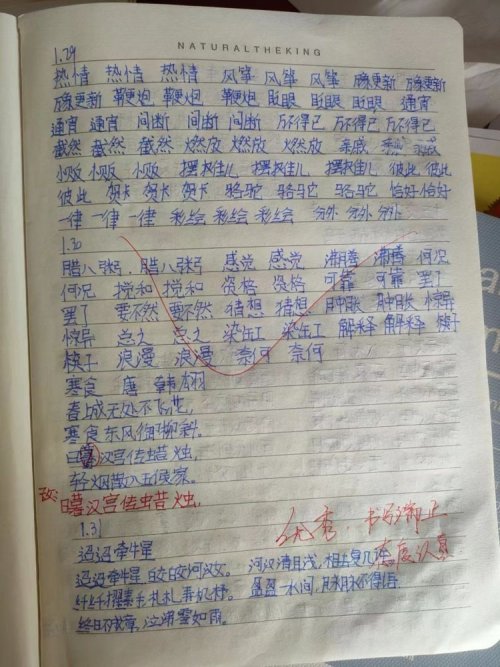 NATURALTHEKING
1.29
热情 热情 热情 风筝 风筝 风筝 万象更新 万象更新
万象更新 鞭炮 鞭炮 鞭炮 眨眼 眨眼 眨眼 通宵
通宵 通宵 间断 间断 间断 万不得已 万不得已 万不得已
截然 截然 截然 燃放 燃放 燃放 亲戚 亲戚 亲戚
小贩 小贩 小贩 摆摊儿 摆摊儿 摆摊儿 彼此 彼此
彼此 贺卡 贺卡 贺卡 骆驼 骆驼 骆驼 恰好 恰好
一律 一律 一律 彩绘 彩绘 彩绘 分外 分外 分外
1.30
腊八粥 腊八粥 感觉 感觉 沸腾 沸腾 何况
何况 搅和 搅和 资格 资格 可靠 可靠 罢了
罢了 要不然 要不然 猜想 猜想 肿胀 肿胀 惊异
惊异 总之 总之 染缸 染缸 解释 解释 筷子
筷子 浪漫 浪漫 奈何 奈何
寒食 唐 韩翃
春城无处不飞花,
寒食东风御柳斜。
日暮汉宫传蜡烛,
轻烟散入五侯家。
改: 日暮汉宫传蜡烛,
优秀, 书写端正
态度认真
1.31
迢迢牵牛星
迢迢牵牛星, 皎皎河汉女。 河汉清且浅, 相去复几许
纤纤擢素手, 札札弄机杼。 盈盈一水间, 脉脉不得语。
终日不成章, 泣涕零如雨。